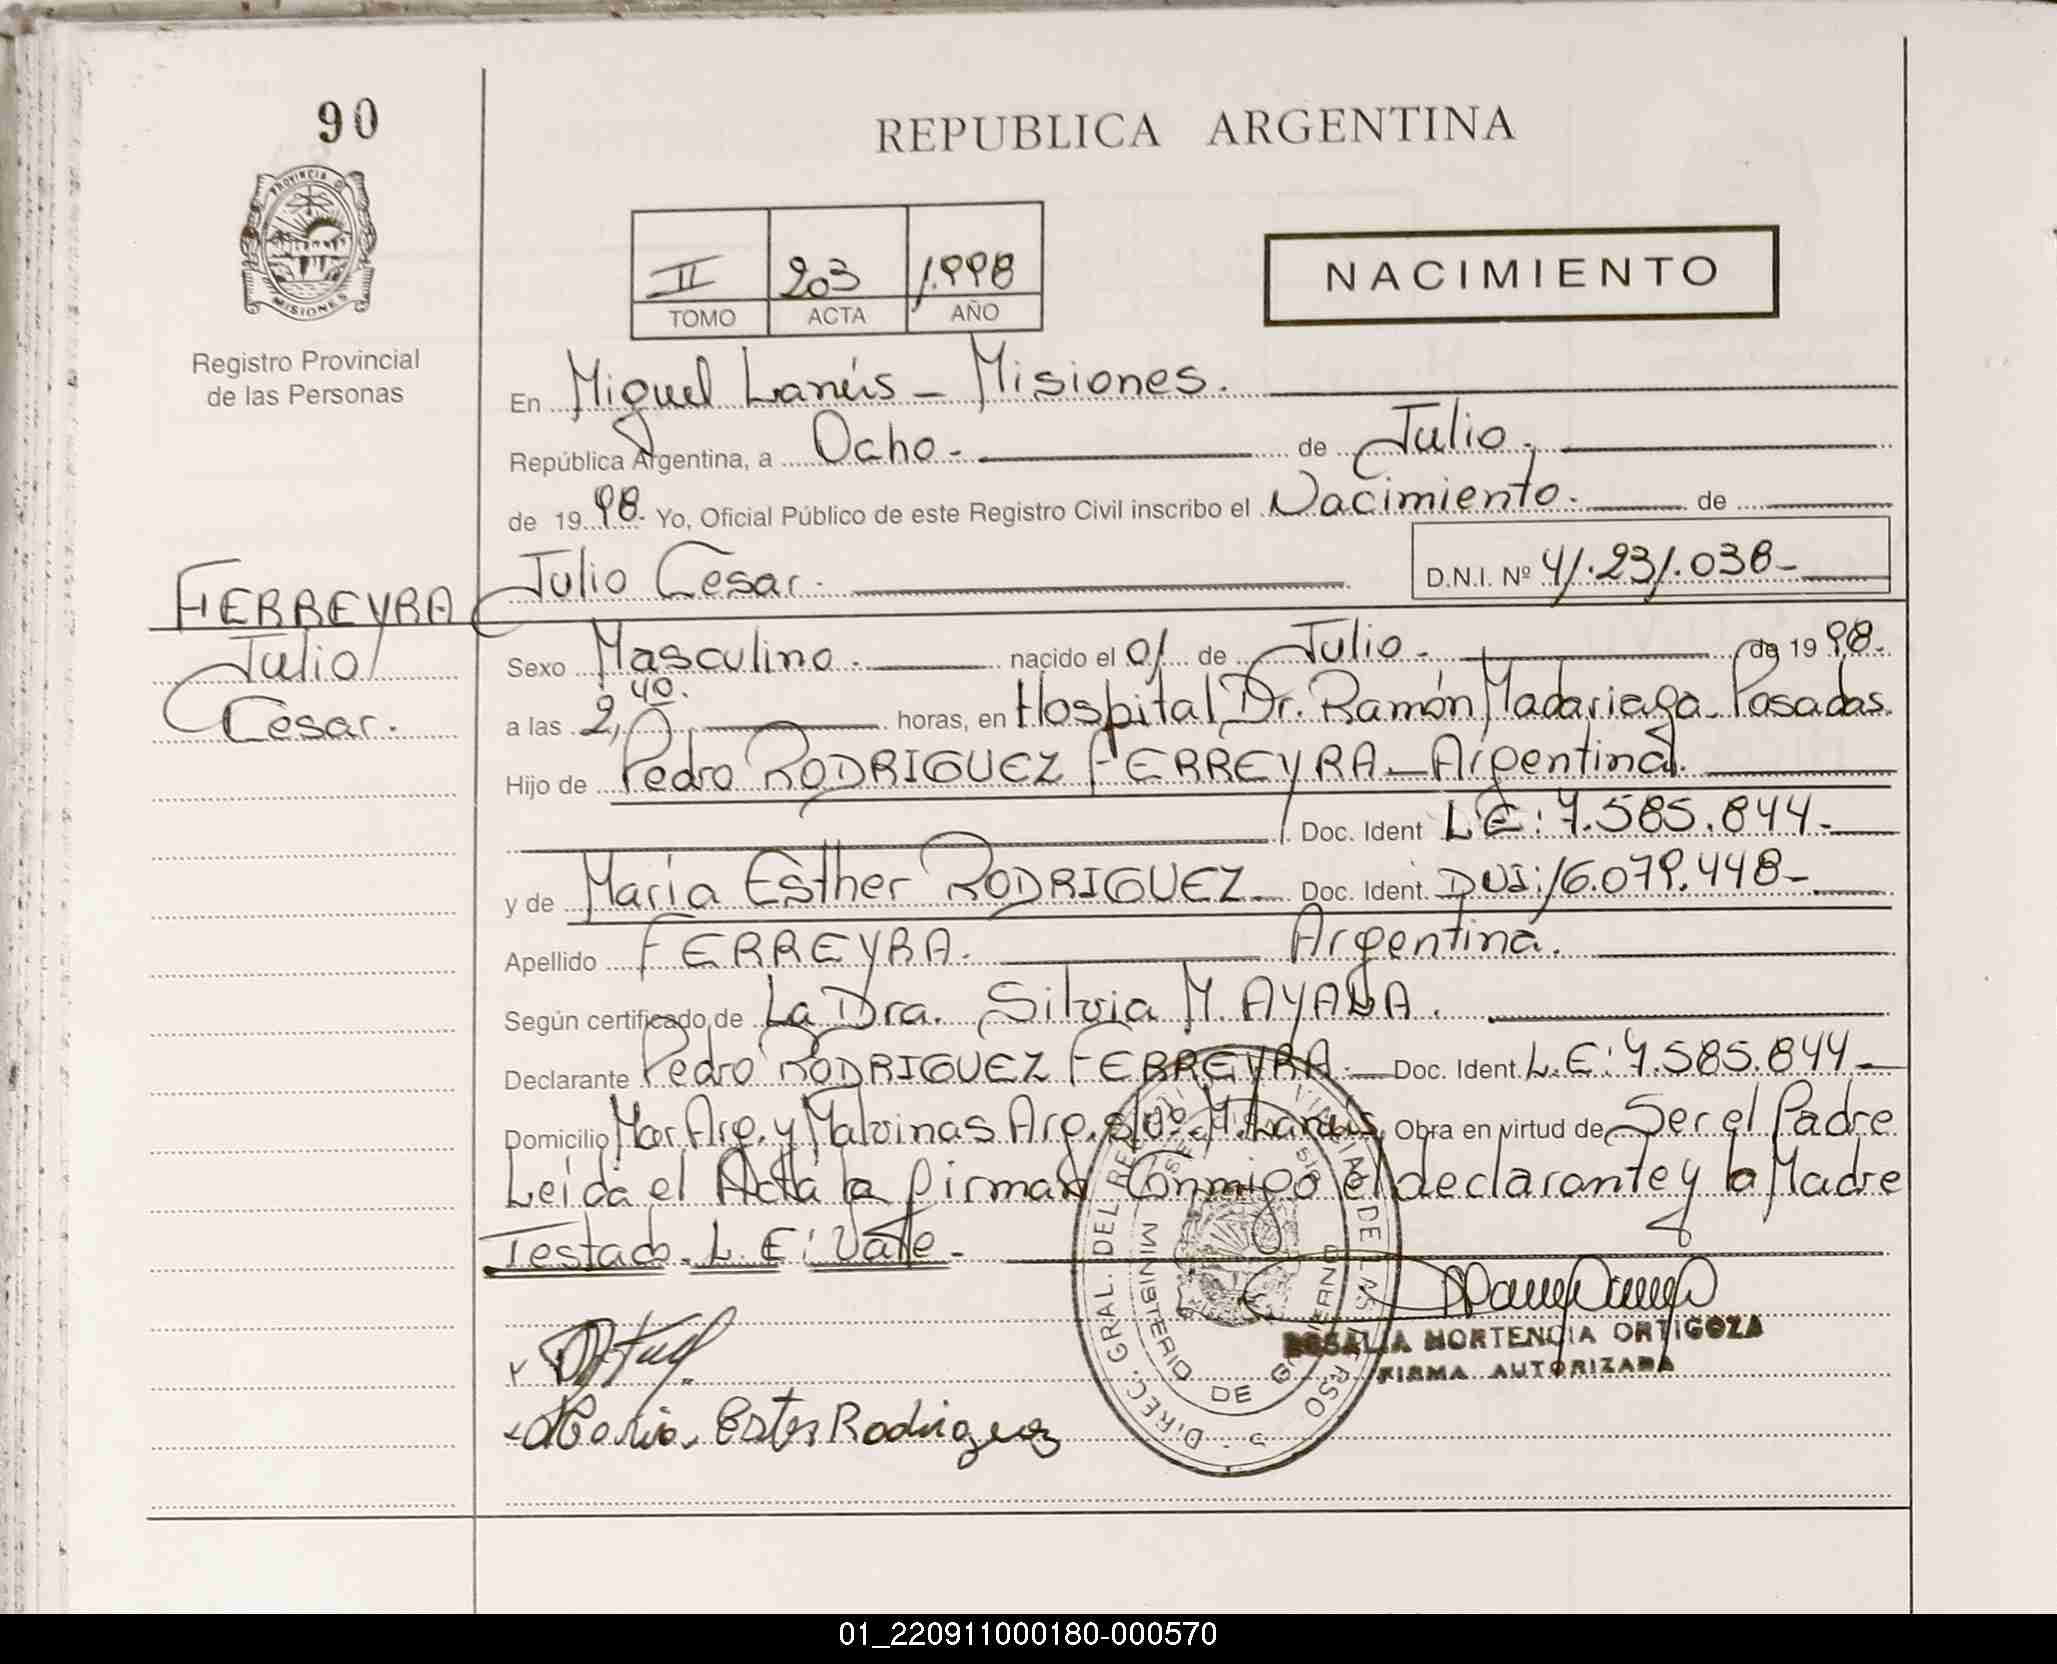 90
REPUBLICA ARGENTINA
PROVINCIA D
MISIONES
II 203 1.998
TOMO ACTA AÑO
NACIMIENTO
Registro Provincial
de las Personas
En Miguel Lanús - Misiones.
República Argentina, a Ocho - de Julio.
de 1998- Yo, Oficial Público de este Registro Civil inscribo el Nacimiento. de
FERREYRA Julio Cesar. D.N.I. Nº 41.231.038-
Julio
Cesar.
Sexo Masculino. nacido el 01 de Julio - de 1998.
a las 2,40. horas, en Hospital Dr. Ramón Madariaga - Posadas.
Hijo de Pedro RODRIGUEZ FERREYRA - Argentina.
Doc. Ident L.E: 7.585.844-
y de María Esther RODRIGUEZ - Doc. Ident. DNI: 16.079.448-
Apellido FERREYRA. Argentina.
Según certificado de La Dra. Silvia M. AYALA.
Declarante Pedro RODRIGUEZ FERREYRA - Doc. Ident. L.E: 7.585.844-
Domicilio Mar Arg. y Malvinas Arg. s/nº - M. Lanús, Obra en virtud de Ser el Padre
Leída el Acta la firman Conmigo el declarante y la Madre
Testado. L.E: Vale -
ROSALIA HORTENCIA ORTIGOZA
FIRMA AUTORIZADA
Maria Ester Rodriguez
MINISTERIO DE GOBIERNO
01_220911000180-000570